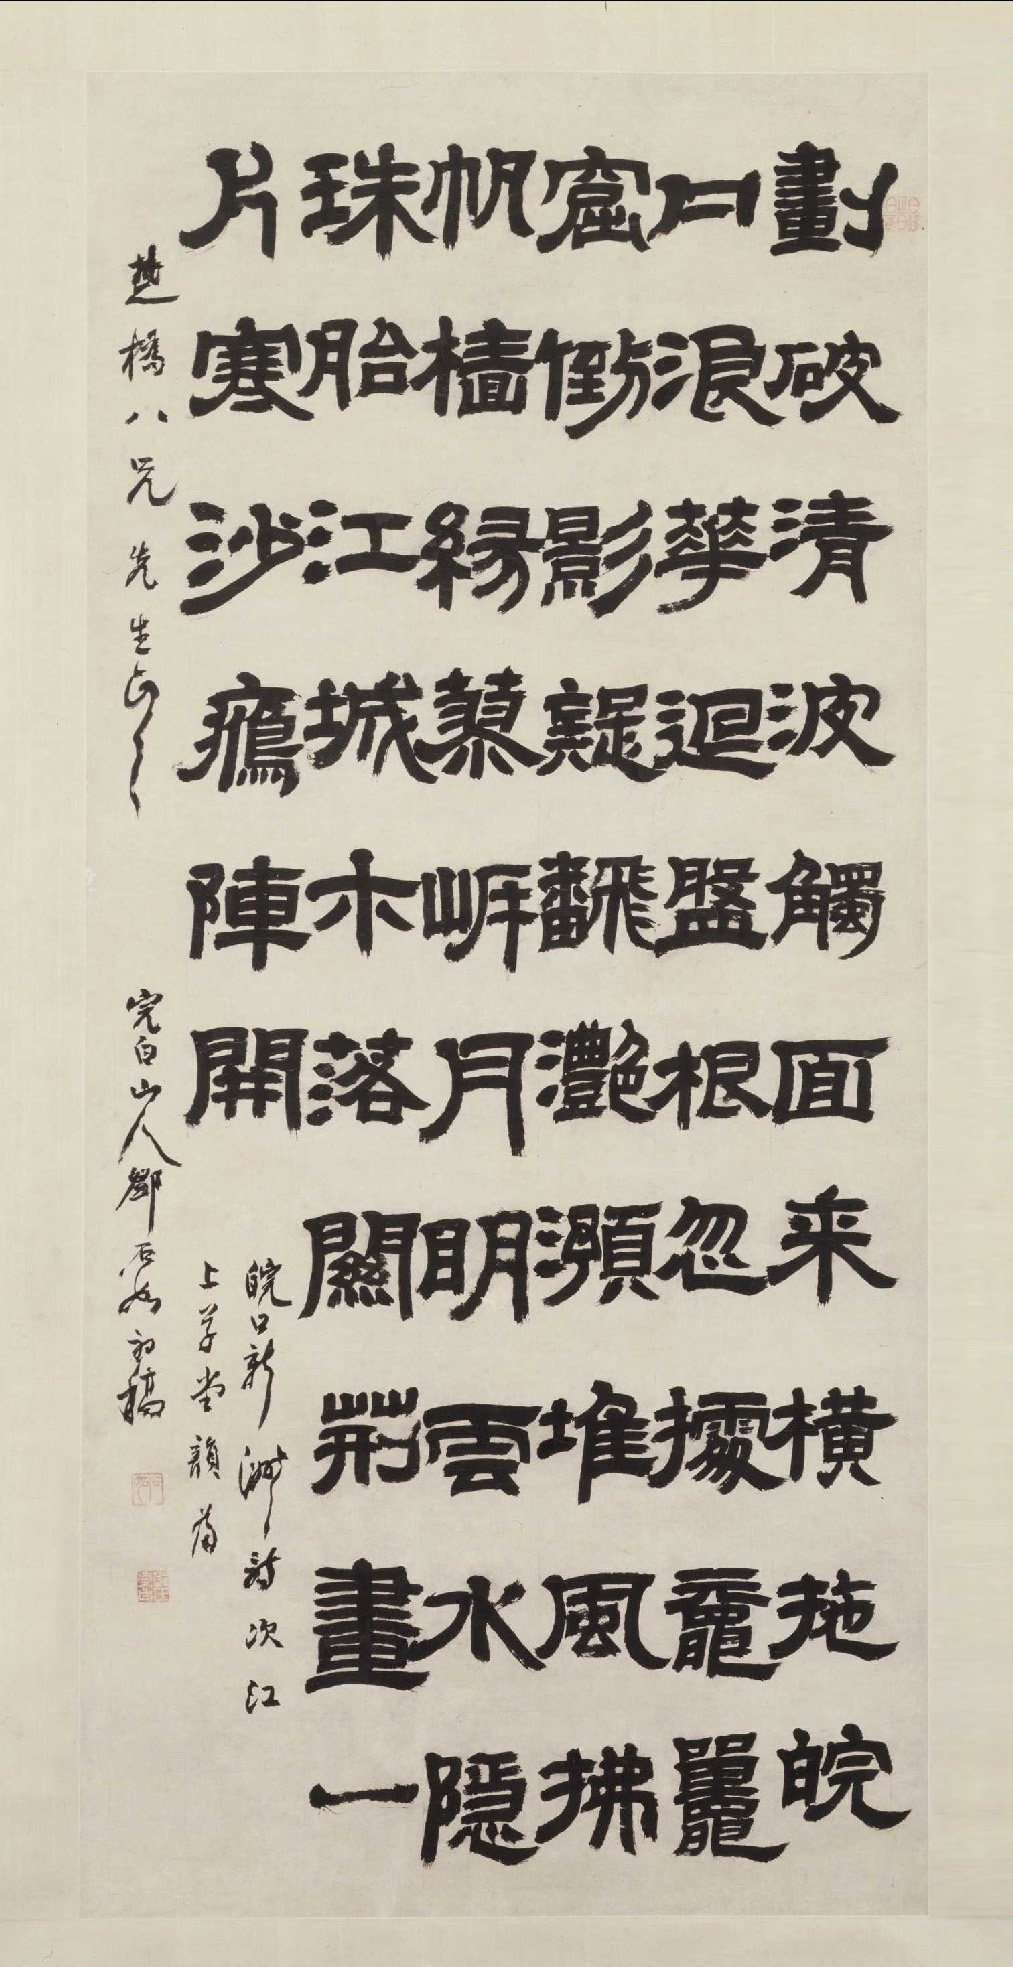 劃破清波觸面来橫拖皖
口浪華迴盤根忽據黿鼉
窟倒影疑飜灔澦堆風拂
帆檣緣慕岸月明雲水隱
珠胎江城木落關荊畫一
片寒沙鴈陣開
皖口新洲詩次江
上草堂韻爲
楚橋八兄先生正之
完白山人鄧石如初稿